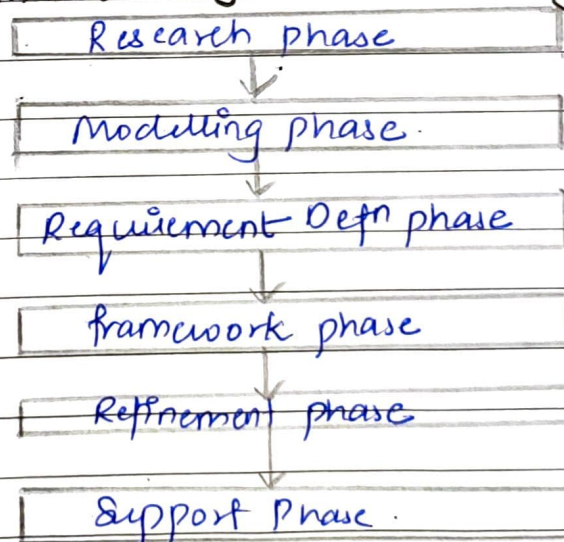 Research phase
Modelling phase.
Requirement Defn phase
framework phase
Refinement phase
Support Phase.